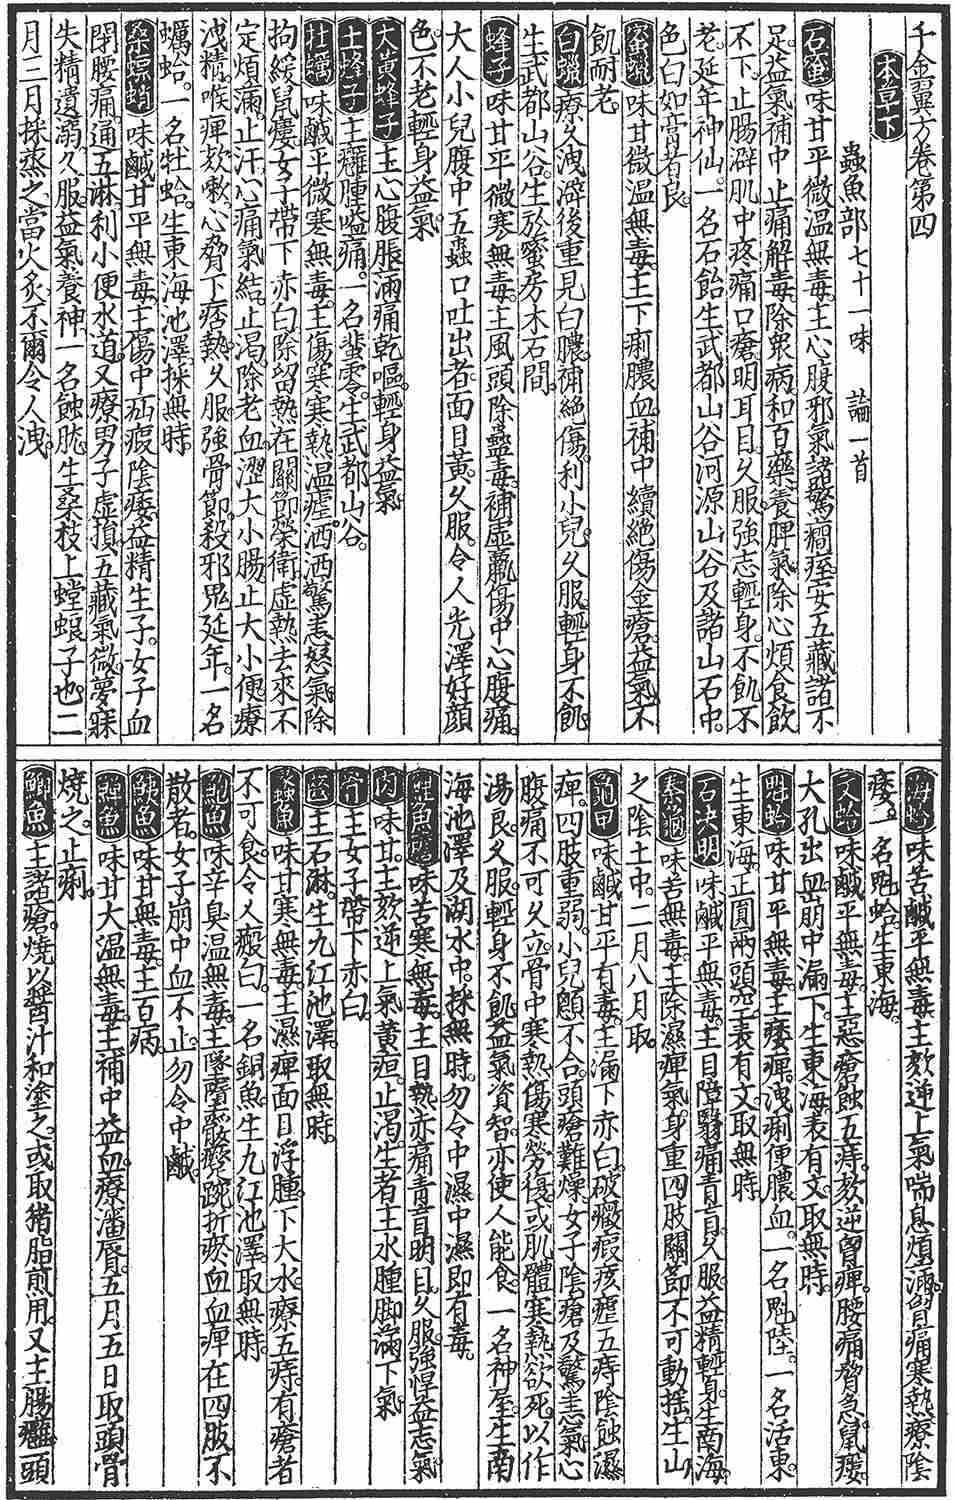 千金翼方卷第四
本草下
蟲魚部七十一味　論一首
石蜜味甘平微溫無毒。主心腹邪氣諸驚癇痓安五藏諸不
足。益氣補中止痛解毒。除眾病。和百藥。養脾氣。除心煩。食飲
不下。止腸澼肌中疼痛口瘡。明耳目。久服強志輕身。不飢不
老。延年神仙。一名石飴。生武都山谷河源山谷及諸山石中。
色白如膏者良。
蜜蠟味甘微溫無毒。主下痢膿血。補中續絕傷金瘡。益氣不
飢耐老。
白蠟療久洩澼後重見白膿。補絕傷。利小兒。久服輕身不飢
生武都山谷。生於蜜房木石間。
蜂子味甘平微寒無毒。主風頭。除蠱毒。補虛羸傷中。心腹痛
大人小兒腹中五蟲口吐出者。面目黃。久服。令人光澤好顏
色不老。輕身益氣。
大黃蜂子主心腹脹滿痛乾嘔。輕身益氣。
土蜂子主癰腫嗌痛。一名蜚零。生武都山谷。
牡蠣味鹹平微寒無毒。主傷寒寒熱溫瘧洒洒驚恚怒氣。除
拘緩鼠瘻女子帶下赤白。除留熱在關節榮衛。虛熱去來不
定煩滿。止汗心痛氣結。止渴除老血。澀大小腸。止大小便。療
洩精。喉痺欬嗽。心脅下痞熱。久服。強骨節。殺邪鬼延年。一名
蠣蛤。一名牡蛤。生東海池澤。採無時。
桑螵蛸味鹹甘平無毒。主傷中疝瘕陰痿。益精生子。女子血
閉腰痛。通五淋。利小便水道。又療男子虛損。五藏氣微。夢寐
失精遺溺。久服。益氣養神。一名蝕肬。生桑枝上。螳蜋子也。二
月三月採蒸之。當火炙。不爾令人洩。
海蛤味苦鹹平無毒。主欬逆上氣喘息煩滿。胷痛寒熱。療陰
痿。一名魁蛤。生東海。
文蛤味鹹平無毒。主惡瘡蝕五痔。欬逆胷痺。腰痛脅急。鼠瘻
大孔出血。崩中漏下。生東海。表有文。取無時。
魁蛤味甘平無毒。主痿痺。洩痢便膿血。一名魁陸。一名活東。
生東海。正圓兩頭空。表有文。取無時。
石決明味鹹平無毒。主目障翳痛青盲。久服。益精輕身。生南海。
秦龜味苦無毒。主除濕痺氣。身重四肢關節不可動搖。生山
之陰土中。二月八月取。
龜甲味鹹甘平有毒。主漏下赤白。破癥瘕痎瘧五痔陰蝕濕
痺。四肢重弱。小兒顖不合。頭瘡難燥。女子陰瘡。及驚恚氣心
腹痛。不可久立。骨中寒熱。傷寒勞復。或肌體寒熱欲死。以作
湯良。久服。輕身不飢。益氣資智。亦使人能食。一名神屋。生南
海池澤及湖水中。採無時。勿令中濕。中濕即有毒。
鯉魚膽味苦寒無毒。主目熱赤痛青盲。明目。久服。強悍益志氣
肉味甘。主欬逆上氣黃疸。止渴。生者主水腫腳滿下氣。
骨主女子帶下赤白。
齒主石淋。生九江池澤。取無時。
蠡魚味甘寒無毒。主濕痺面目浮腫。下大水。療五痔。有瘡者
不可食。令人瘢白。一名鮦魚。生九江池澤。取無時。
鮑魚味辛臭溫無毒。主墜蹷踠折瘀血血痺在四肢不
散者。女子崩中血不止。勿令中鹹
鮧魚味甘無毒。主百病。
䱇魚味甘大溫無毒。主補中益血。療瀋脣。五月五日取頭骨
燒之。止痢。
鯽魚主諸瘡。燒以醬汁和塗之。或取豬脂煎用。又主腸癰。頭